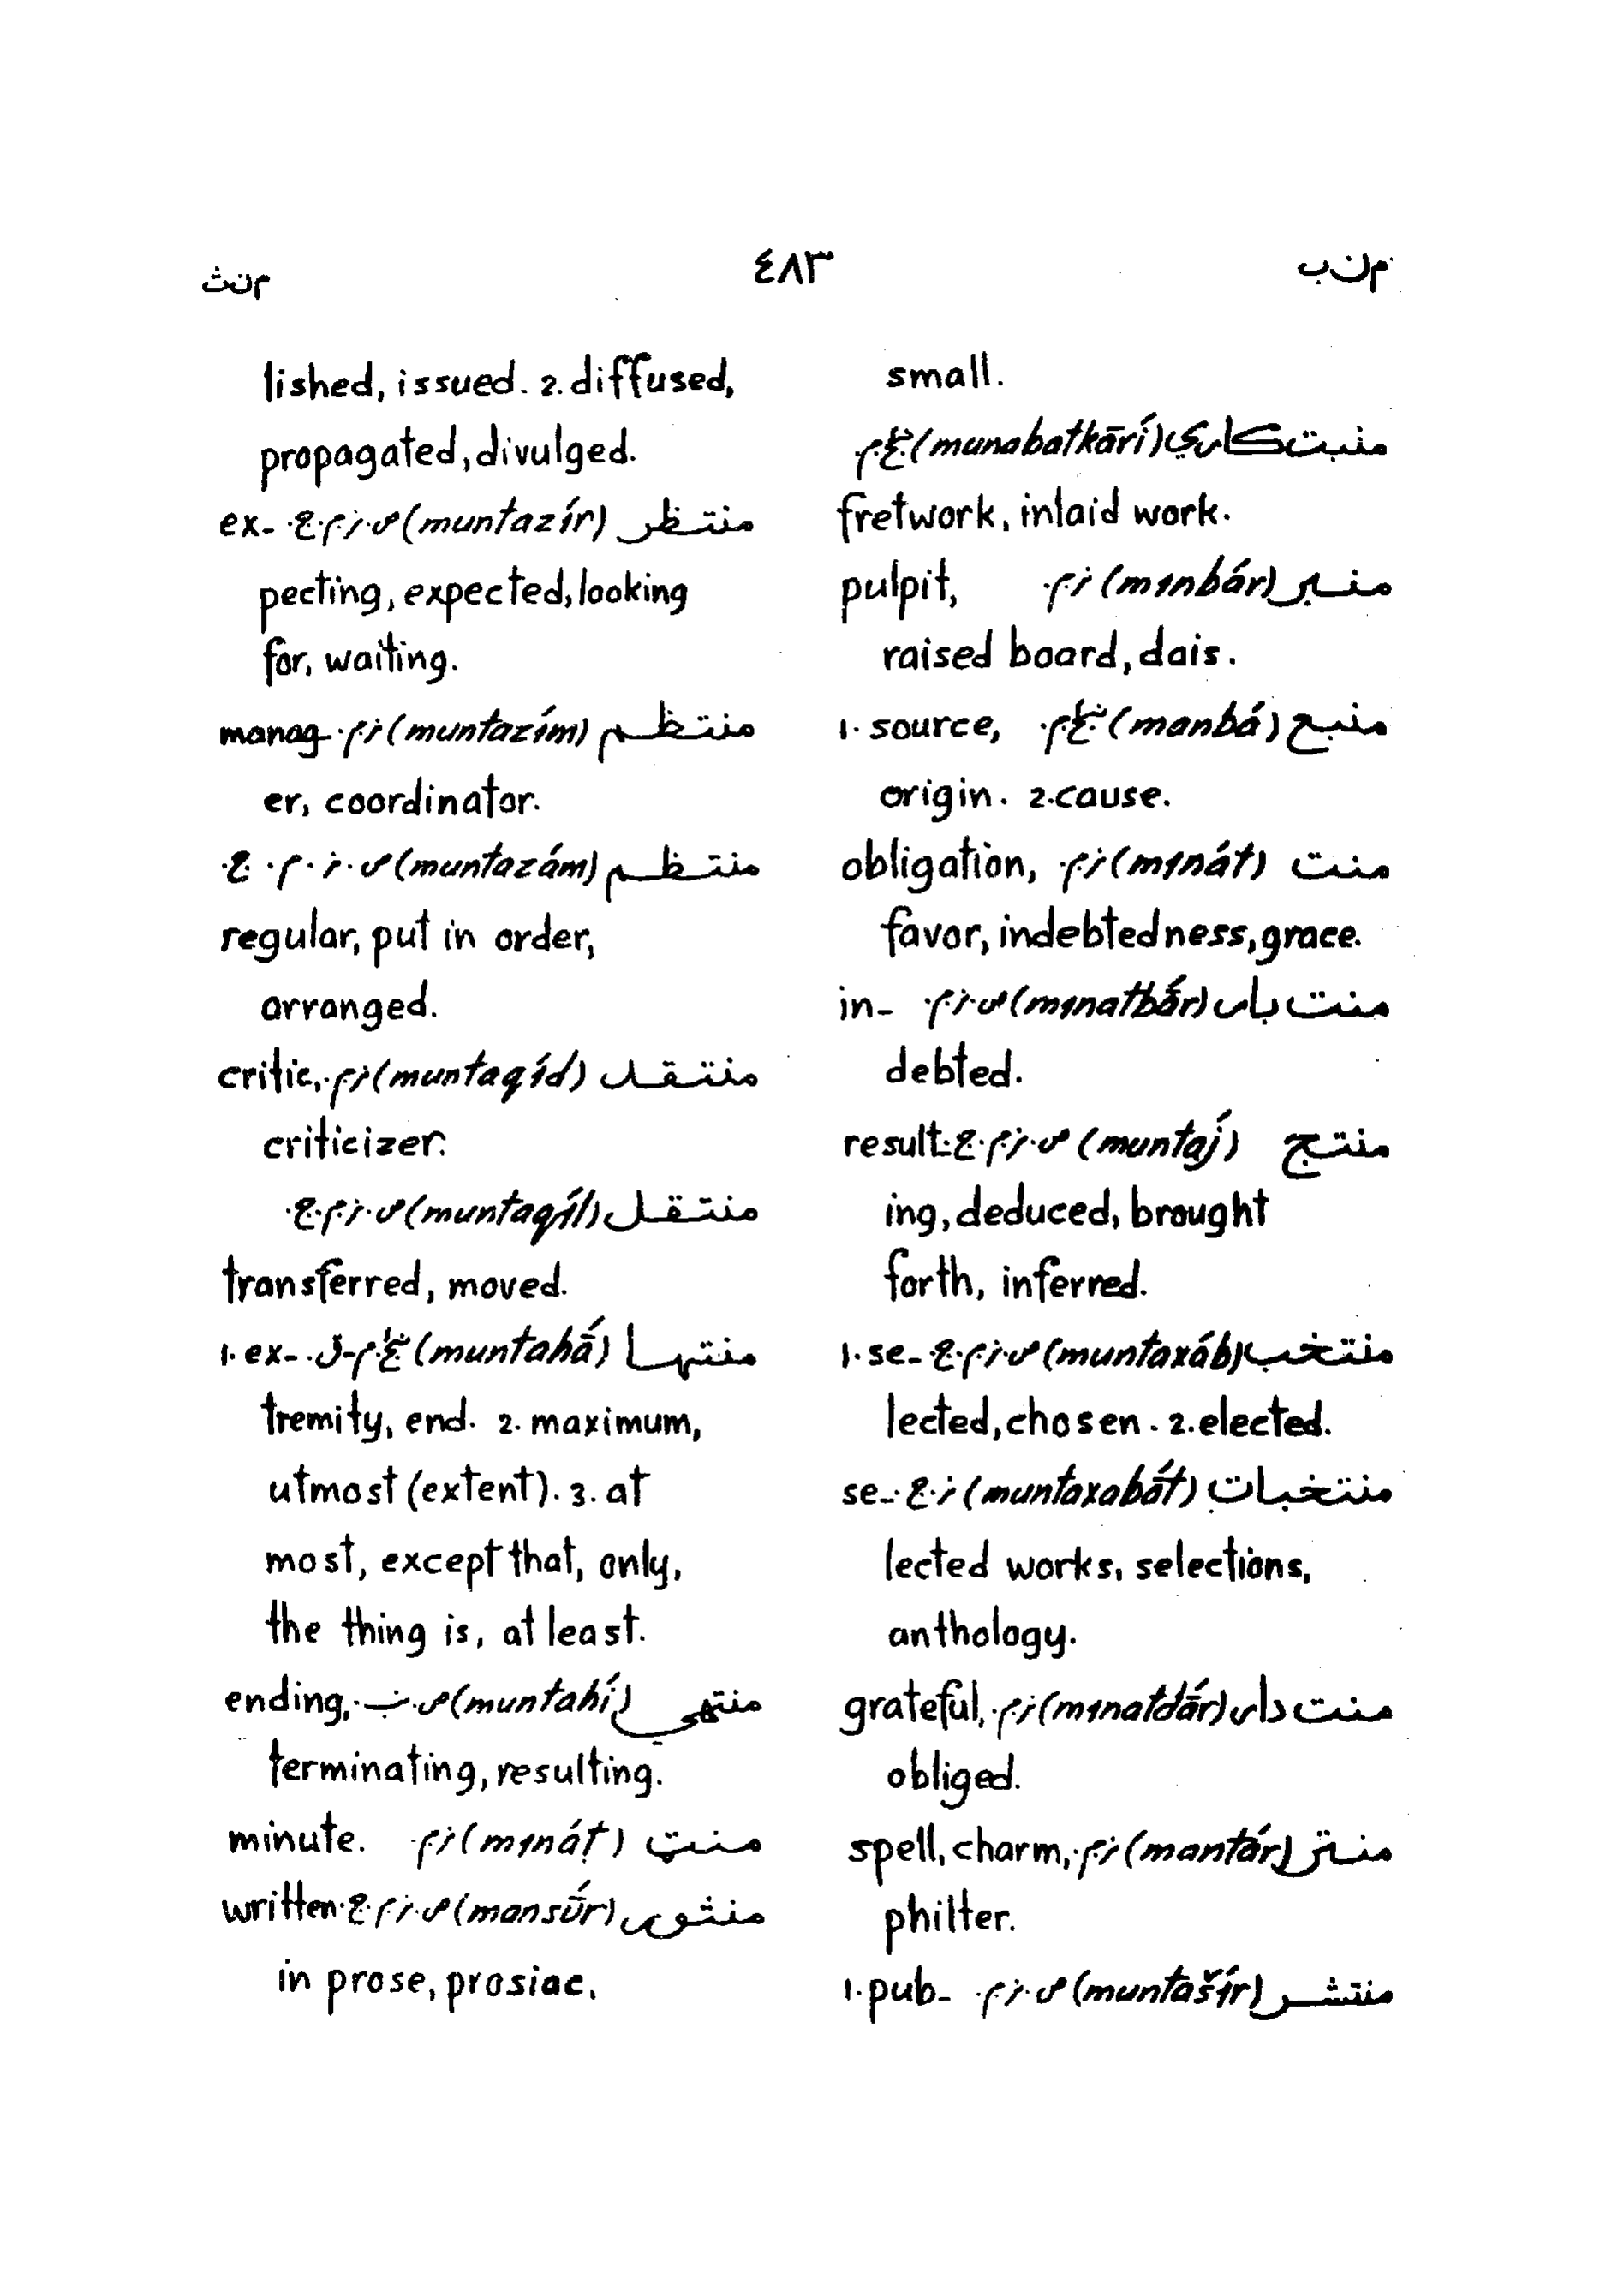 منب
٤٨٣
منث
small.
منبت‌کاري (munabatkārí)
fretwork, inlaid work.
منبر (mɪnbár) ز.م. pulpit,
raised board, dais.
منبع (manbá) 1. source,
origin. 2. cause.
منت (mɪnát) ز.م. obligation,
favor, indebtedness, grace.
منت بار (mɪnatbā́r) ص.ز.م. in-
debted.
منتج (muntáj) ص.ز.م.ج. result-
ing, deduced, brought
forth, inferred.
منتخب (muntaxáb) ص.ز.م.ج. 1. se-
lected, chosen. 2. elected.
منتخبات (muntaxabā́t) ز.ج. se-
lected works, selections,
anthology.
منت دار (mɪnatdā́r) ز.م. grateful,
obliged.
منتر (mantár) ز.م. spell, charm,
philter.
منتشر (muntašír) ص.ز.م. 1. pub-
lished, issued. 2. diffused,
propagated, divulged.
منتظر (muntazír) ص.ز.م.ج. ex-
pecting, expected, looking
for, waiting.
منتظم (muntazím) ز.م. manag-
er, coordinator.
منتظم (muntazám) ص.ز.م.ج.
regular, put in order,
arranged.
منتقد (muntaqíd) ز.م. critic,
criticizer.
منتقل (muntaqíl) ص.ز.م.ج.
transferred, moved.
منتها (muntahā́) 1. ex-
tremity, end. 2. maximum,
utmost (extent). 3. at
most, except that, only,
the thing is, at least.
منتهي (muntahí) ending,
terminating, resulting.
منټ (mɪnáṭ) ز.م. minute.
منثور (mansū́r) ص.ز.م.ج. written
in prose, prosiac.